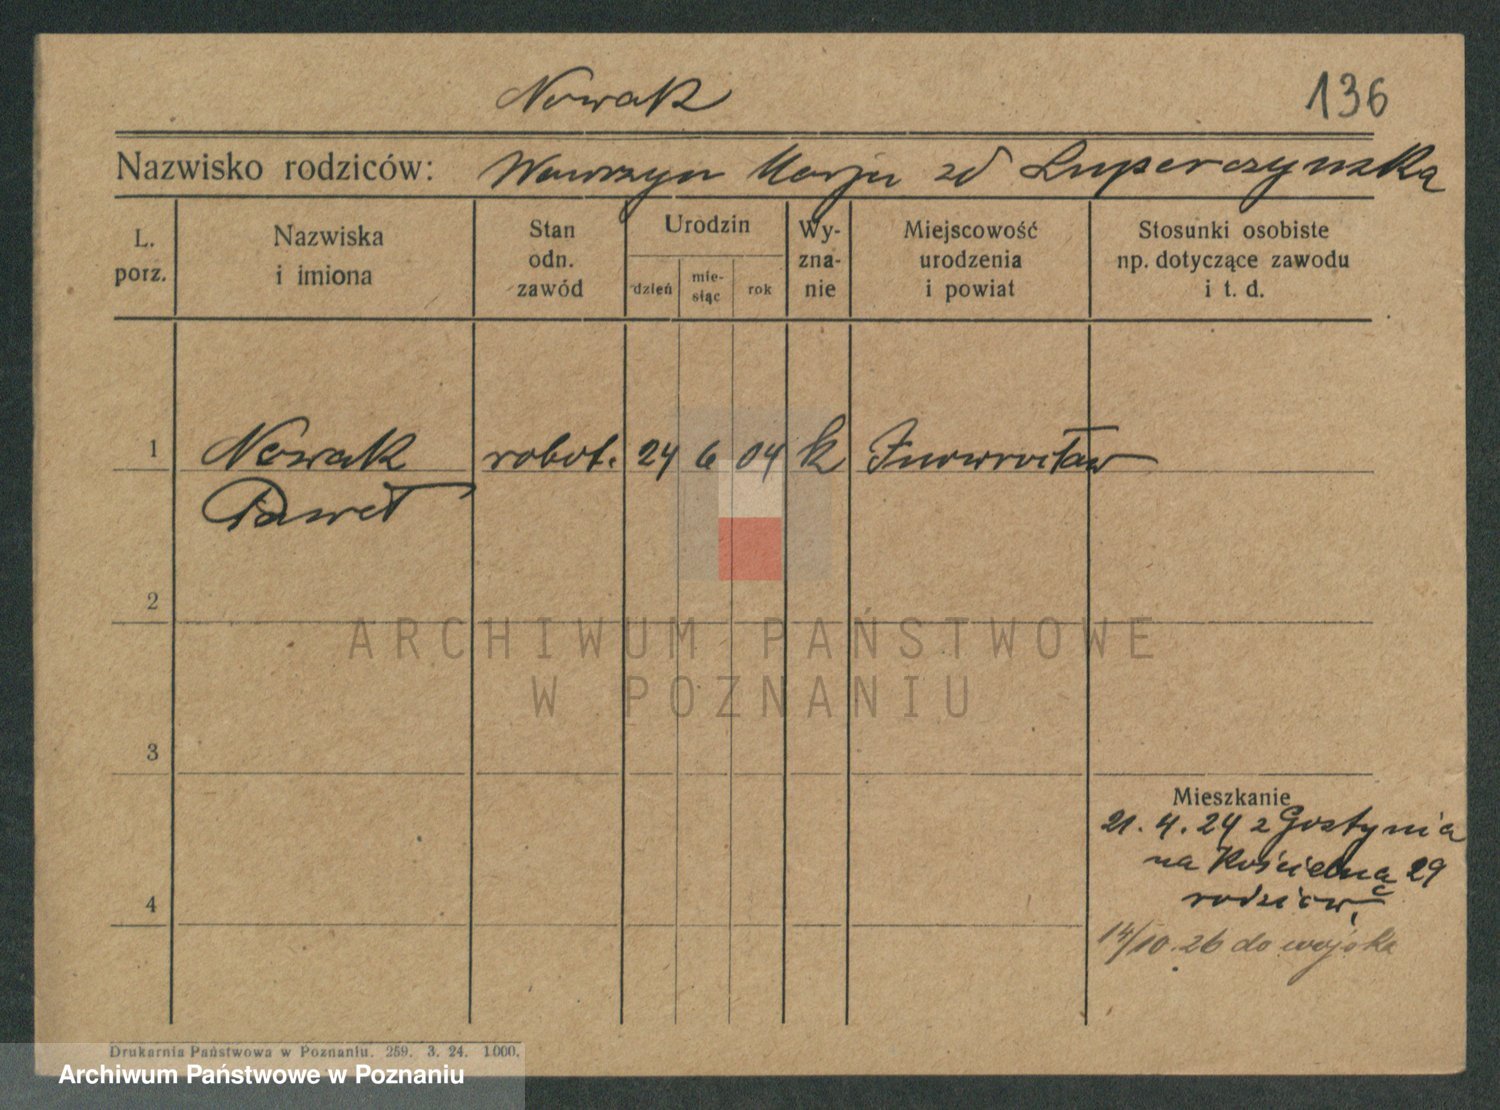 Nowak
136
Nazwisko rodziców: Wawrzyn Marja zd Luperczynska
L. porz.
Nazwiska i imiona
Stan odn. zawód
Urodzin
dzień
mie-siąc
rok
Wy-zna-nie
Miejscowość urodzenia i powiat
Stosunki osobiste np. dotyczące zawodu i t. d.
1 Nowak robot. 24 6 04 k Inowrocław
Paweł
2
ARCHIWUM PAŃSTWOWE
W POZNANIU
3
Mieszkanie
21.4.24 z Gostynia
na Kościelną 29
4
rodziców,
14/10.26 do wojska
Drukarnia Państwowa w Poznaniu. 259. 3. 24. 1000.
Archiwum Państwowe w Poznaniu